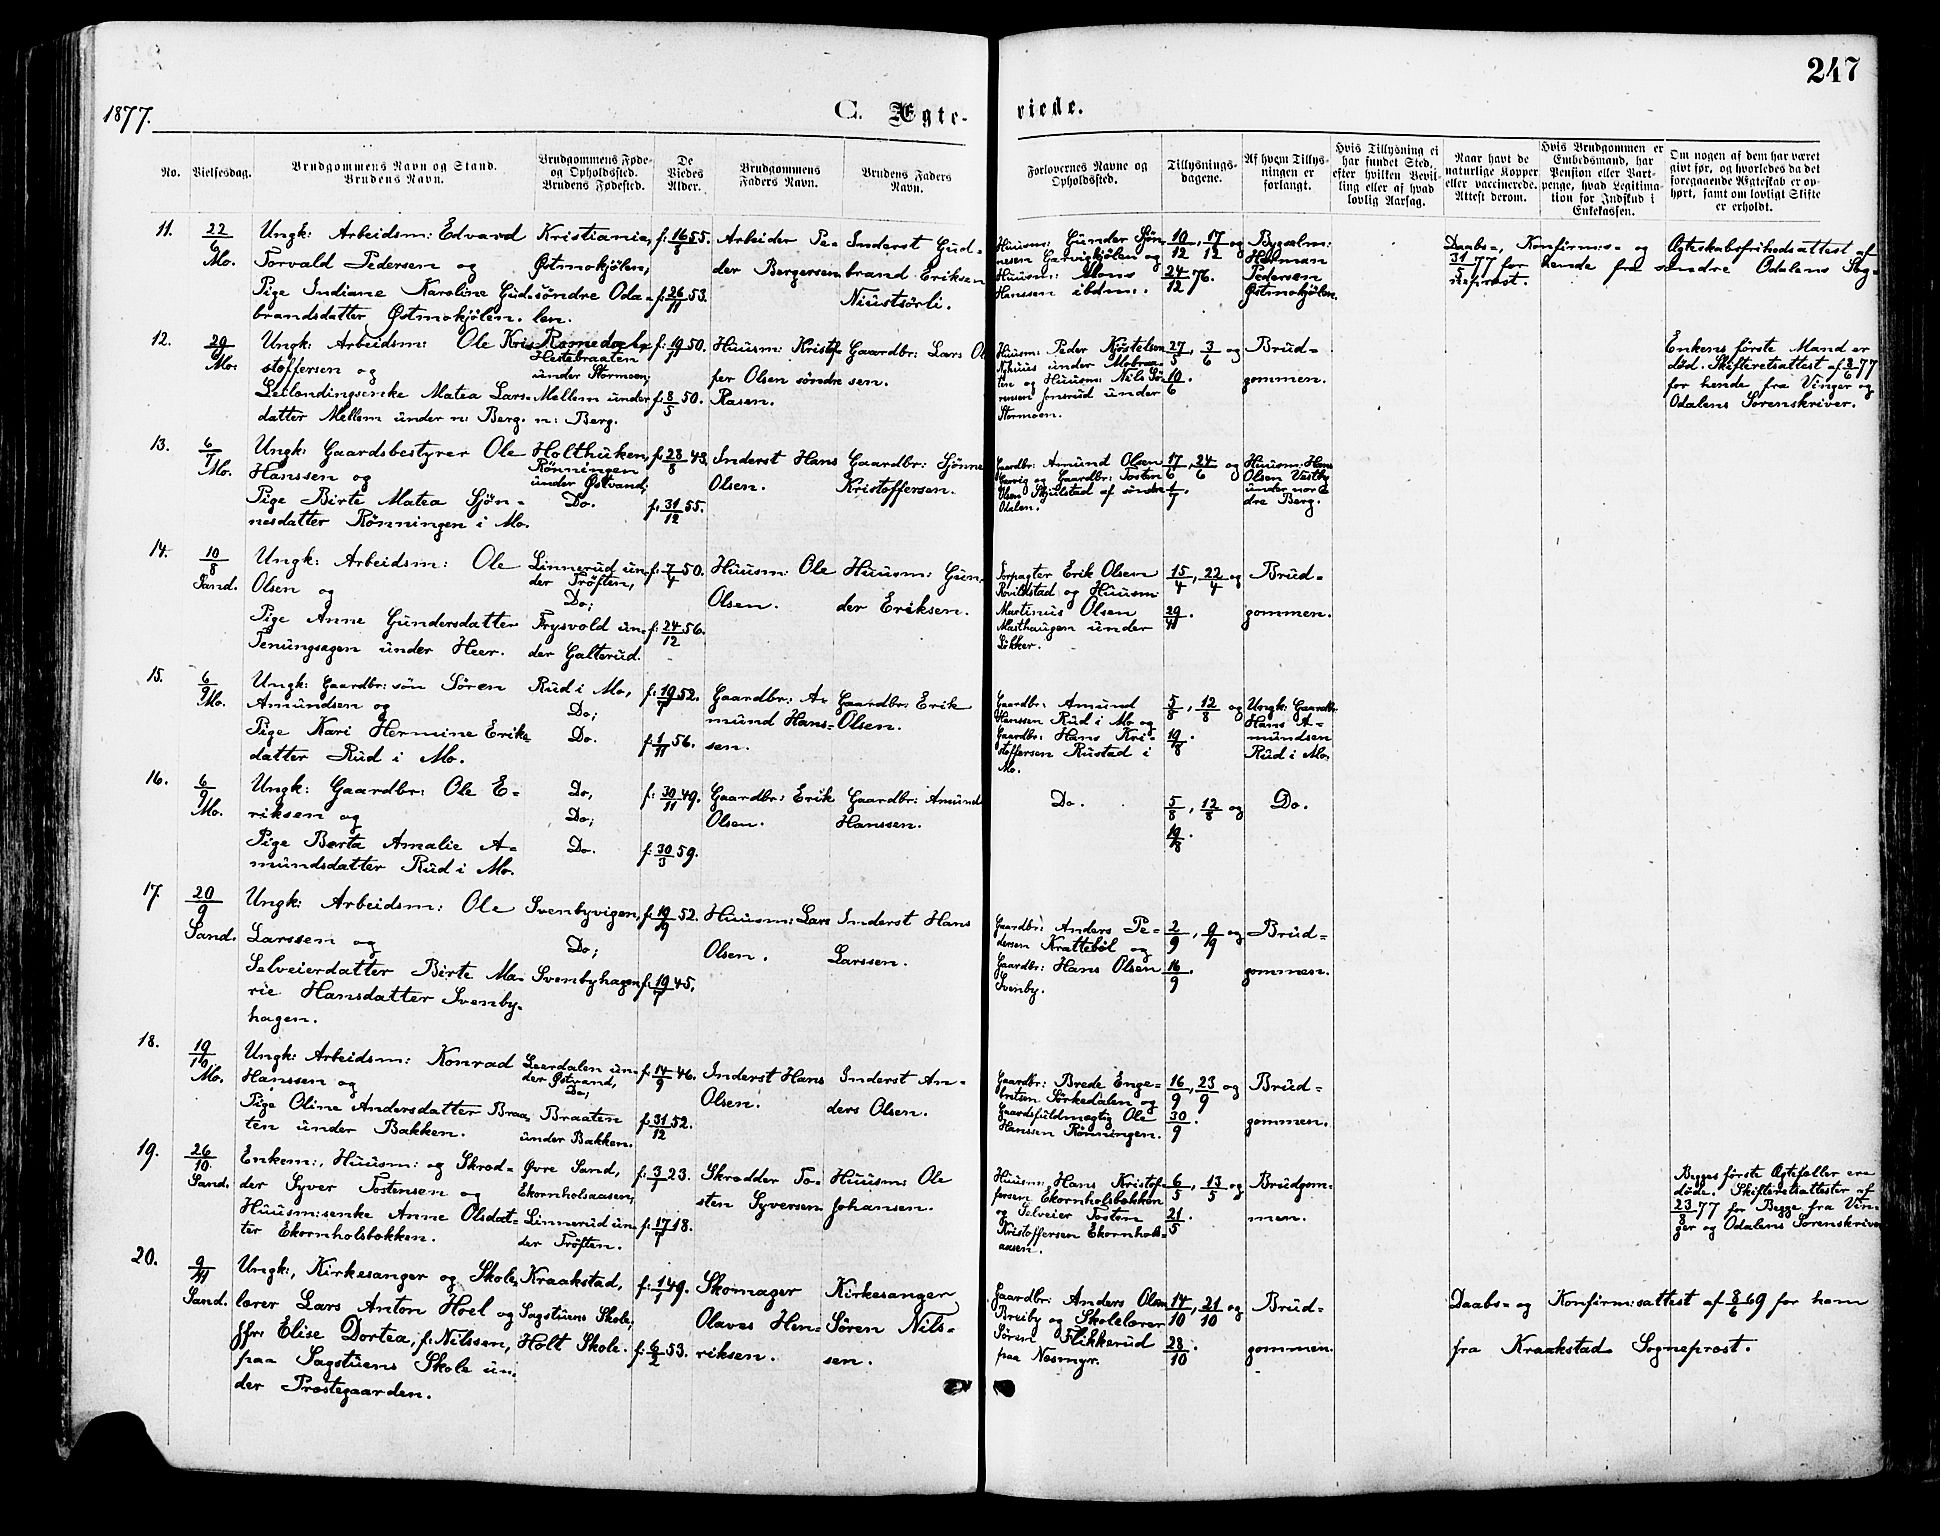 247
1877.
C. Ægte-
viede.
No.
Vielsesdag.
Brudgommens Navn og Stand.
Brudens Navn.
Brudgommens Føde-
og Opholdssted.
Brudens Fødested.
De
Viedes
Alder.
Brudgommens
Faders Navn.
Brudens Faders
Navn.
Forlovernes Navne og
Opholdssted.
Tillysnings-
dagene.
Af hvem Tillys-
ningen er
forlangt.
Hvis Tillysning ei
har fundet Sted,
efter hvilken Bevil-
ling eller af hvad
lovlig Aarsag.
Naar havt de
naturlige Kopper
eller vaccinerede.
Attest derom.
Hvis Brudgommen er
Embedsmand, har
Pension eller Vart-
penge, hvad Legitima-
tion for Indskud i
Enkekassen.
Om nogen af dem har været
givt før, og hvorledes da det
foregaaende Ægteskab er op-
hørt, samt om lovligt Skifte
er erholdt.
11.
22/6
Mo.
Ungk: Arbeidsm: Edvard
Torvald Pedersen og
Pige Indiane Karoline Gud-
brandsdatter Østmokjølen.
Kristiania,
Østmokjølen;
søndre Oda-
len.
f: 16 55.
f: 26/11 53.
Arbeider Pe-
der Bergersen
Inderst Gud-
brand Eriksen
Niüstsørli.
Huusm: Gunder Jøn-
nesen Garvigkjølen og
Huusm: Mons
Hanssen ibdm:.
10/12, 17/12 og
24/12 76.
Bygselm:
Herman
Pedersen
Østmokjølen.
Daabs-, Konfirm:s- og Ægteskabsfrihedsattest af
31/5 77 for hende fra søndre Odalens Sog-
neprost.
12.
29/6
Mo.
Ungk: Arbeidsm: Ole Kri-
stoffersen og
Leilændingsenke Matea Lars-
datter Mellem under n: Berg.
Romedal,
Hestebraaten
under Stormoen;
Mellem under
n: Berg.
f: 19/11 50.
f: 8/5 50.
Huusm: Kristof-
fer Olsen søndre
Rasen.
Gaardbr: Lars Ol-
sen.
Huusm: Peder Kjøstelsen
Nyhuus under Mobraa-
ten og Huusm: Nils Sø-
rensen Jonsrud under
Stormoen.
27/5, 3/6 og
10/6.
Brud-
gommen.
Enkens første Mand er
død. Skifteretsattest af 2/6 77
for hende fra Vinger og
Odalens Sorenskriver.
13.
6/7
Mo.
Ungk: Gaardsbestyrer Ole
Hanssen og
Pige Birte Matea Sjøn-
nesdatter Rønningen i Mo.
Holthuken,
Rønningen
under Østvand;
Do.
f: 28/8 43.
f: 31/12 55.
Inderst Hans
Olsen.
Gaardbr: Sjønne
Kristoffersen.
Gaardbr: Amund Olsen
Garvig og Gaardbr: Tosten
Olsen Skjulstad af søndre
Odalen.
17/6, 24/6 og
1/7.
Huusm: Hans
Olsen Vestby
under nor-
dre Berg.
14.
10/8
Sand.
Ungk: Arbeidsm: Ole
Olsen og
Pige Anne Gundersdatter
under Heer.
Linnerud un-
der Trøften,
Do;
Frysvold un-
der Galterud.
f: 7/4 50.
f: 24/12 56.
Huusm: Ole
Olsen.
Huusm: Gun-
der Eriksen.
Forpagter Erik Olsen
og Huusm:
Martinus Olsen
Masthaugen under
Løkker.
15/4, 22/4 og
29/4.
Brud-
gommen.
15.
6/9
Mo.
Ungk: Gaardbr: søn Søren
Amundsen og
Pige Kari Hermine Eriks-
datter Rud i Mo.
Rud i Mo,
Do;
Do.
f: 19/7 52.
f: 1/11 56.
Gaardbr: A-
mund Hans-
sen.
Gaardbr: Erik
Olsen.
Gaardbr: Amund
Hanssen Rud i Mo og
Gaardbr: Hans Kri-
stoffersen Rustad i
Mo.
5/8, 12/8 og
19/8.
Ungk: Gaardbr:
Hans A-
mundsen
Rud i Mo.
16.
6/9
Mo.
Ungk: Gaardbr: Ole E-
riksen og
Pige Berta Amalie A-
mundsdatter Rud i Mo.
Do,
Do;
Do.
f: 30/11 49.
f: 30/3 59.
Gaardbr: Erik
Olsen.
Gaardbr: Amund
Hanssen.
Do.
5/8, 12/8 og
19/8.
Do.
17.
20/9
Sand.
Ungk: Arbeidsm: Ole
Larssen og
Selveierdatter Birte Ma-
rie Hansdatter Svenby-
hagen.
Svenbyvigen,
Do;
Svenbyhagen
f: 19/9 52.
f: 19/7 45.
Huusm: Lars
Olsen.
Inderst Hans
Larssen.
Gaardbr: Anders Pe-
dersen Krattebøl og
Gaardbr: Hans Olsen
Svenby.
2/9, 9/9 og
16/9.
Brud-
gommen.
18.
19/10
Mo.
Ungk: Arbeidsm: Konrad
Hanssen og
Pige Oline Andersdatter Braa-
ten under Bakken.
Leerdalen un-
der Østvand,
Do;
Braaten
under Bakken.
f: 14/9 46.
f: 31/12 52.
Inderst Hans
Olsen.
Inderst An-
ders Olsen.
Gaardbr: Brede Enge-
bretsen Sørkedalen og
Gaardsfuldmægtig Ole
Hanssen Rønningen.
16/9, 23/9 og
30/9.
Brud-
gommen.
19.
26/10.
Sand.
Enkem:, Huusm: og Skræd-
der Syver Tostensen og
Huusm:senke Anne Olsdat-
ter Ekornholsbakken.
Øvre Sand,
Ekornholsaasen;
Linnerud un-
der Trøften.
f: 3/7 23.
f: 17/7 18.
Skrædder To-
sten Syversen
Huusm: Ole
Johansen.
Huusm: Hans Kristof-
fersen Ekornholsbakken
og Selveier Tosten
Kristoffersen Ekornhols-
aasen.
6/5, 13/5 og
21/5.
Brudgom-
men.
Begges første Ægtefæller ere
døde. Skifteretsattester af
23/8 77 for Begge fra Vin-
ger og Odalens Sorenskriver
20.
9/11
Sand.
Ungk:, Kirkesanger og Skole-
lærer Lars Anton Hoel og
Jfr: Elise Dortea, f: Nilssen,
paa Sagstuens Skole un-
der Præstegaarden.
Kraakstad,
Sagstuens Skole;
Holt Skole.
f: 1/7 49.
f: 6/2 53.
Skomager
Olaves Hen-
riksen.
Kirkesanger
Søren Nils-
sen.
Gaardbr: Anders Olsen
Breiby og Skolelærer
Søren Flikkerud
paa Næsmyr.
14/10, 21/10 og
28/10.
Brud-
gommen.
Daabs- og Konfirm:sattest af 8/6 69 for ham
fra Kraakstad Sogneprest.